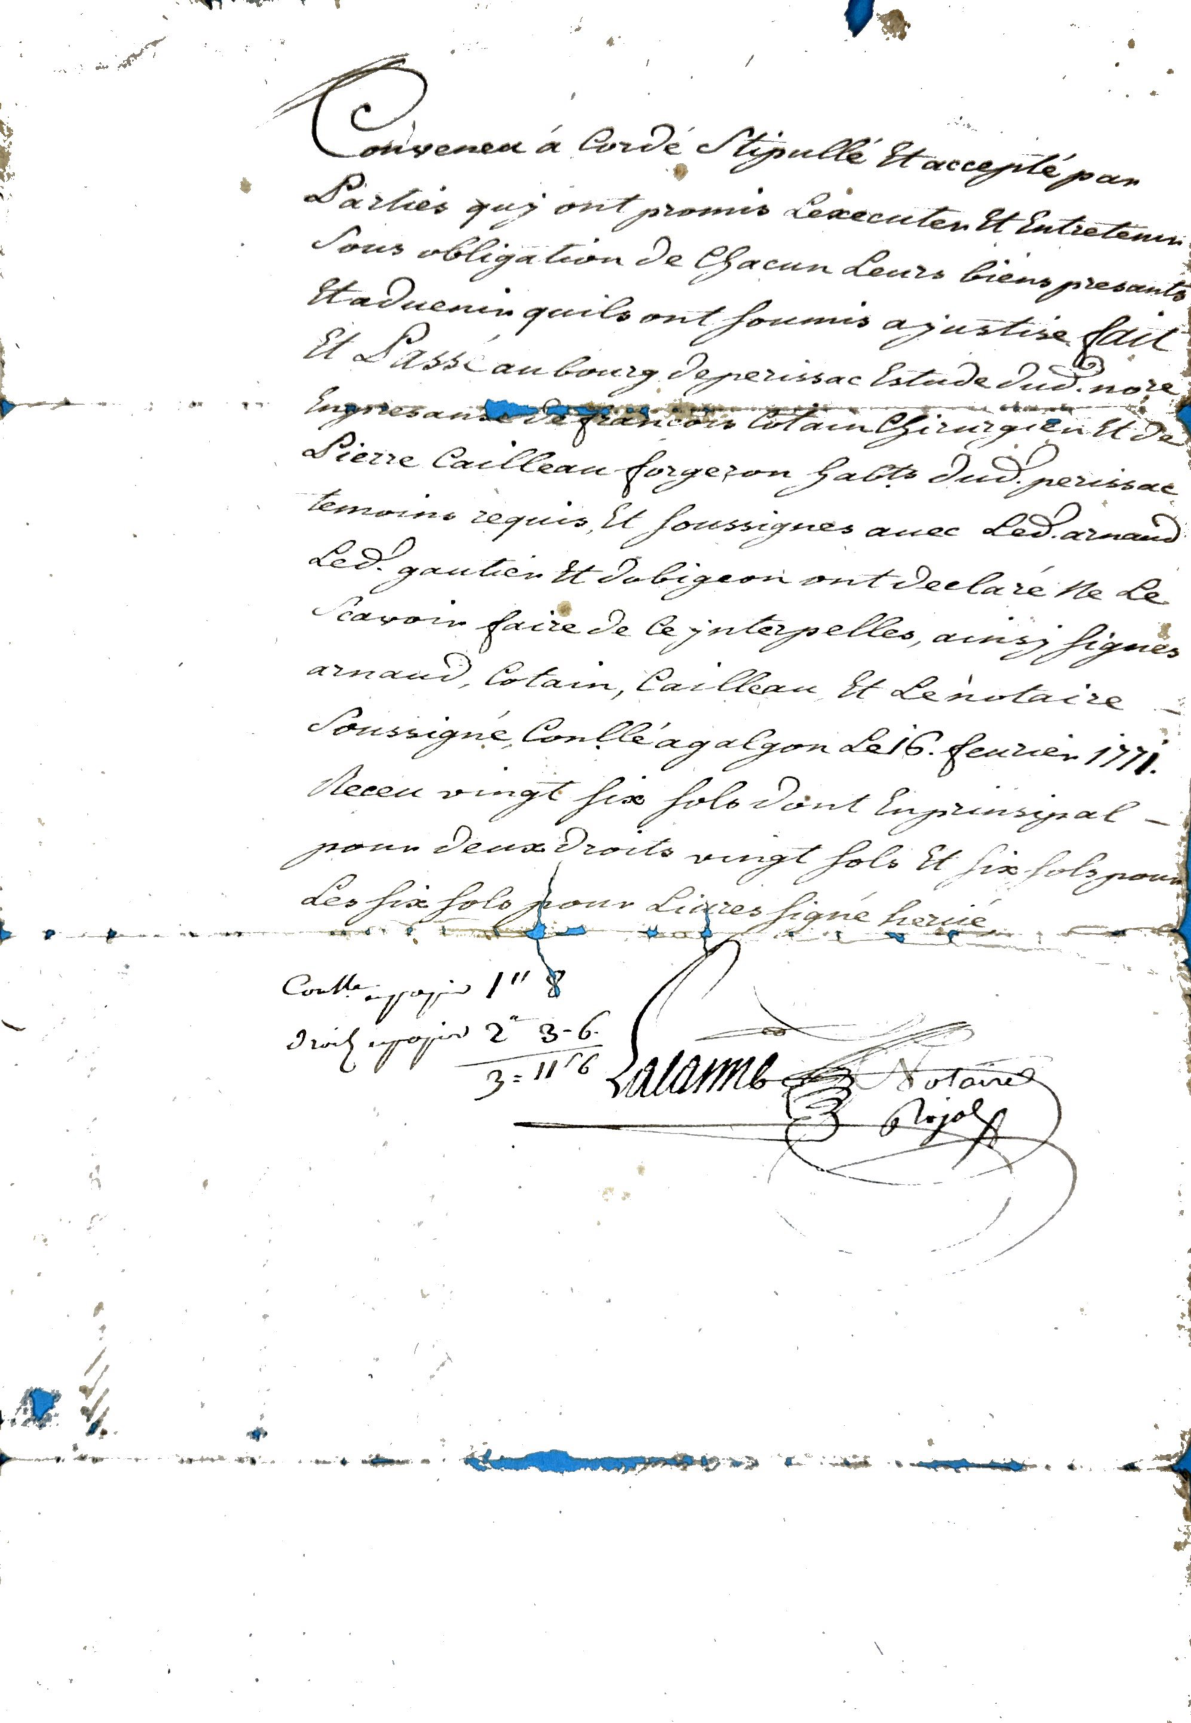 Conveneu á Cordé Stipullé Et accepté par
Parties quj ont promis Lexecuter Et Entretenir
Sous obligation de Chacun Leurs biens presants
Et aduenir quils ont soumis a justise fait
Et Passé au bourg de perissac Estude dud. nore
En presanse de francois Cotain Chirurgien Et de
Pierre Cailleau forgeron habts dud. perissac
temoins requis, Et soussignes auec Led. arnaud
Led. gautier Et dobigeon ont declaré Ne Le
Scavoir faire de Ce jnterpelles, ainsj signés
arnaud, Cotain, Cailleau, Et Le notaire -
Soussigné, Conllé a galgon Le 16. feurier 1771.
Receu vingt six sols dont En prinsipal -
pour deux droits vingt sols Et six sols pour
Les six sols pour Liures signé heruè
Conlle 1" 8
droit 2" 3-6.
3 = 11 s 6
Lacanne Notaire
Rojal